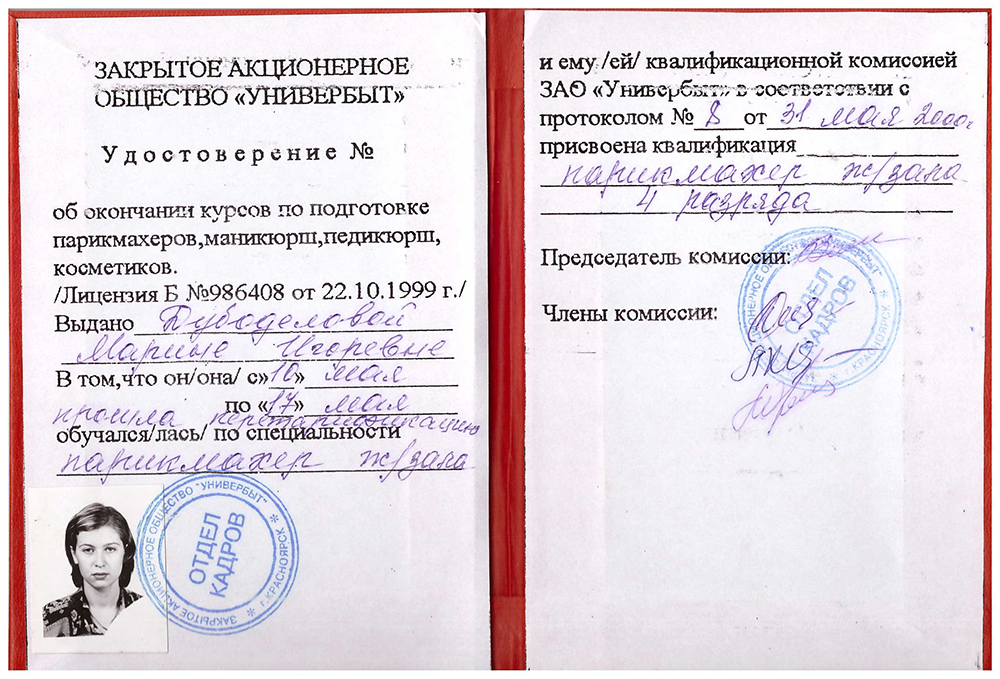 ЗАКРЫТОЕ АКЦИОНЕРНОЕ
ОБЩЕСТВО «УНИВЕРБЫТ»
Удостоверение №
об окончании курсов по подготовке
парикмахеров,маникюрш,педикюрш,
косметиков.
/Лицензия Б №986408 от 22.10.1999 г./
Выдано Дубоделовой
Марине Игоревне
В том,что он/она/ с»10» мая
по «17» мая
прошла перетарификацию
обучался/лась/ по специальности
парикмахер ж/зала
ЗАКРЫТОЕ АКЦИОНЕРНОЕ ОБЩЕСТВО "УНИВЕРБЫТ"
г.КРАСНОЯРСК
ОТДЕЛ
КАДРОВ
и ему /ей/ квалификационной комиссией
ЗАО «Универбыт» в соответствии с
протоколом № 8 от 31 мая 2000г
присвоена квалификация
парикмахер ж/зала
4 разряда
Председатель комиссии:
Члены комиссии:
ОТДЕЛ
КАДРОВ
г.КРАСНОЯРСК